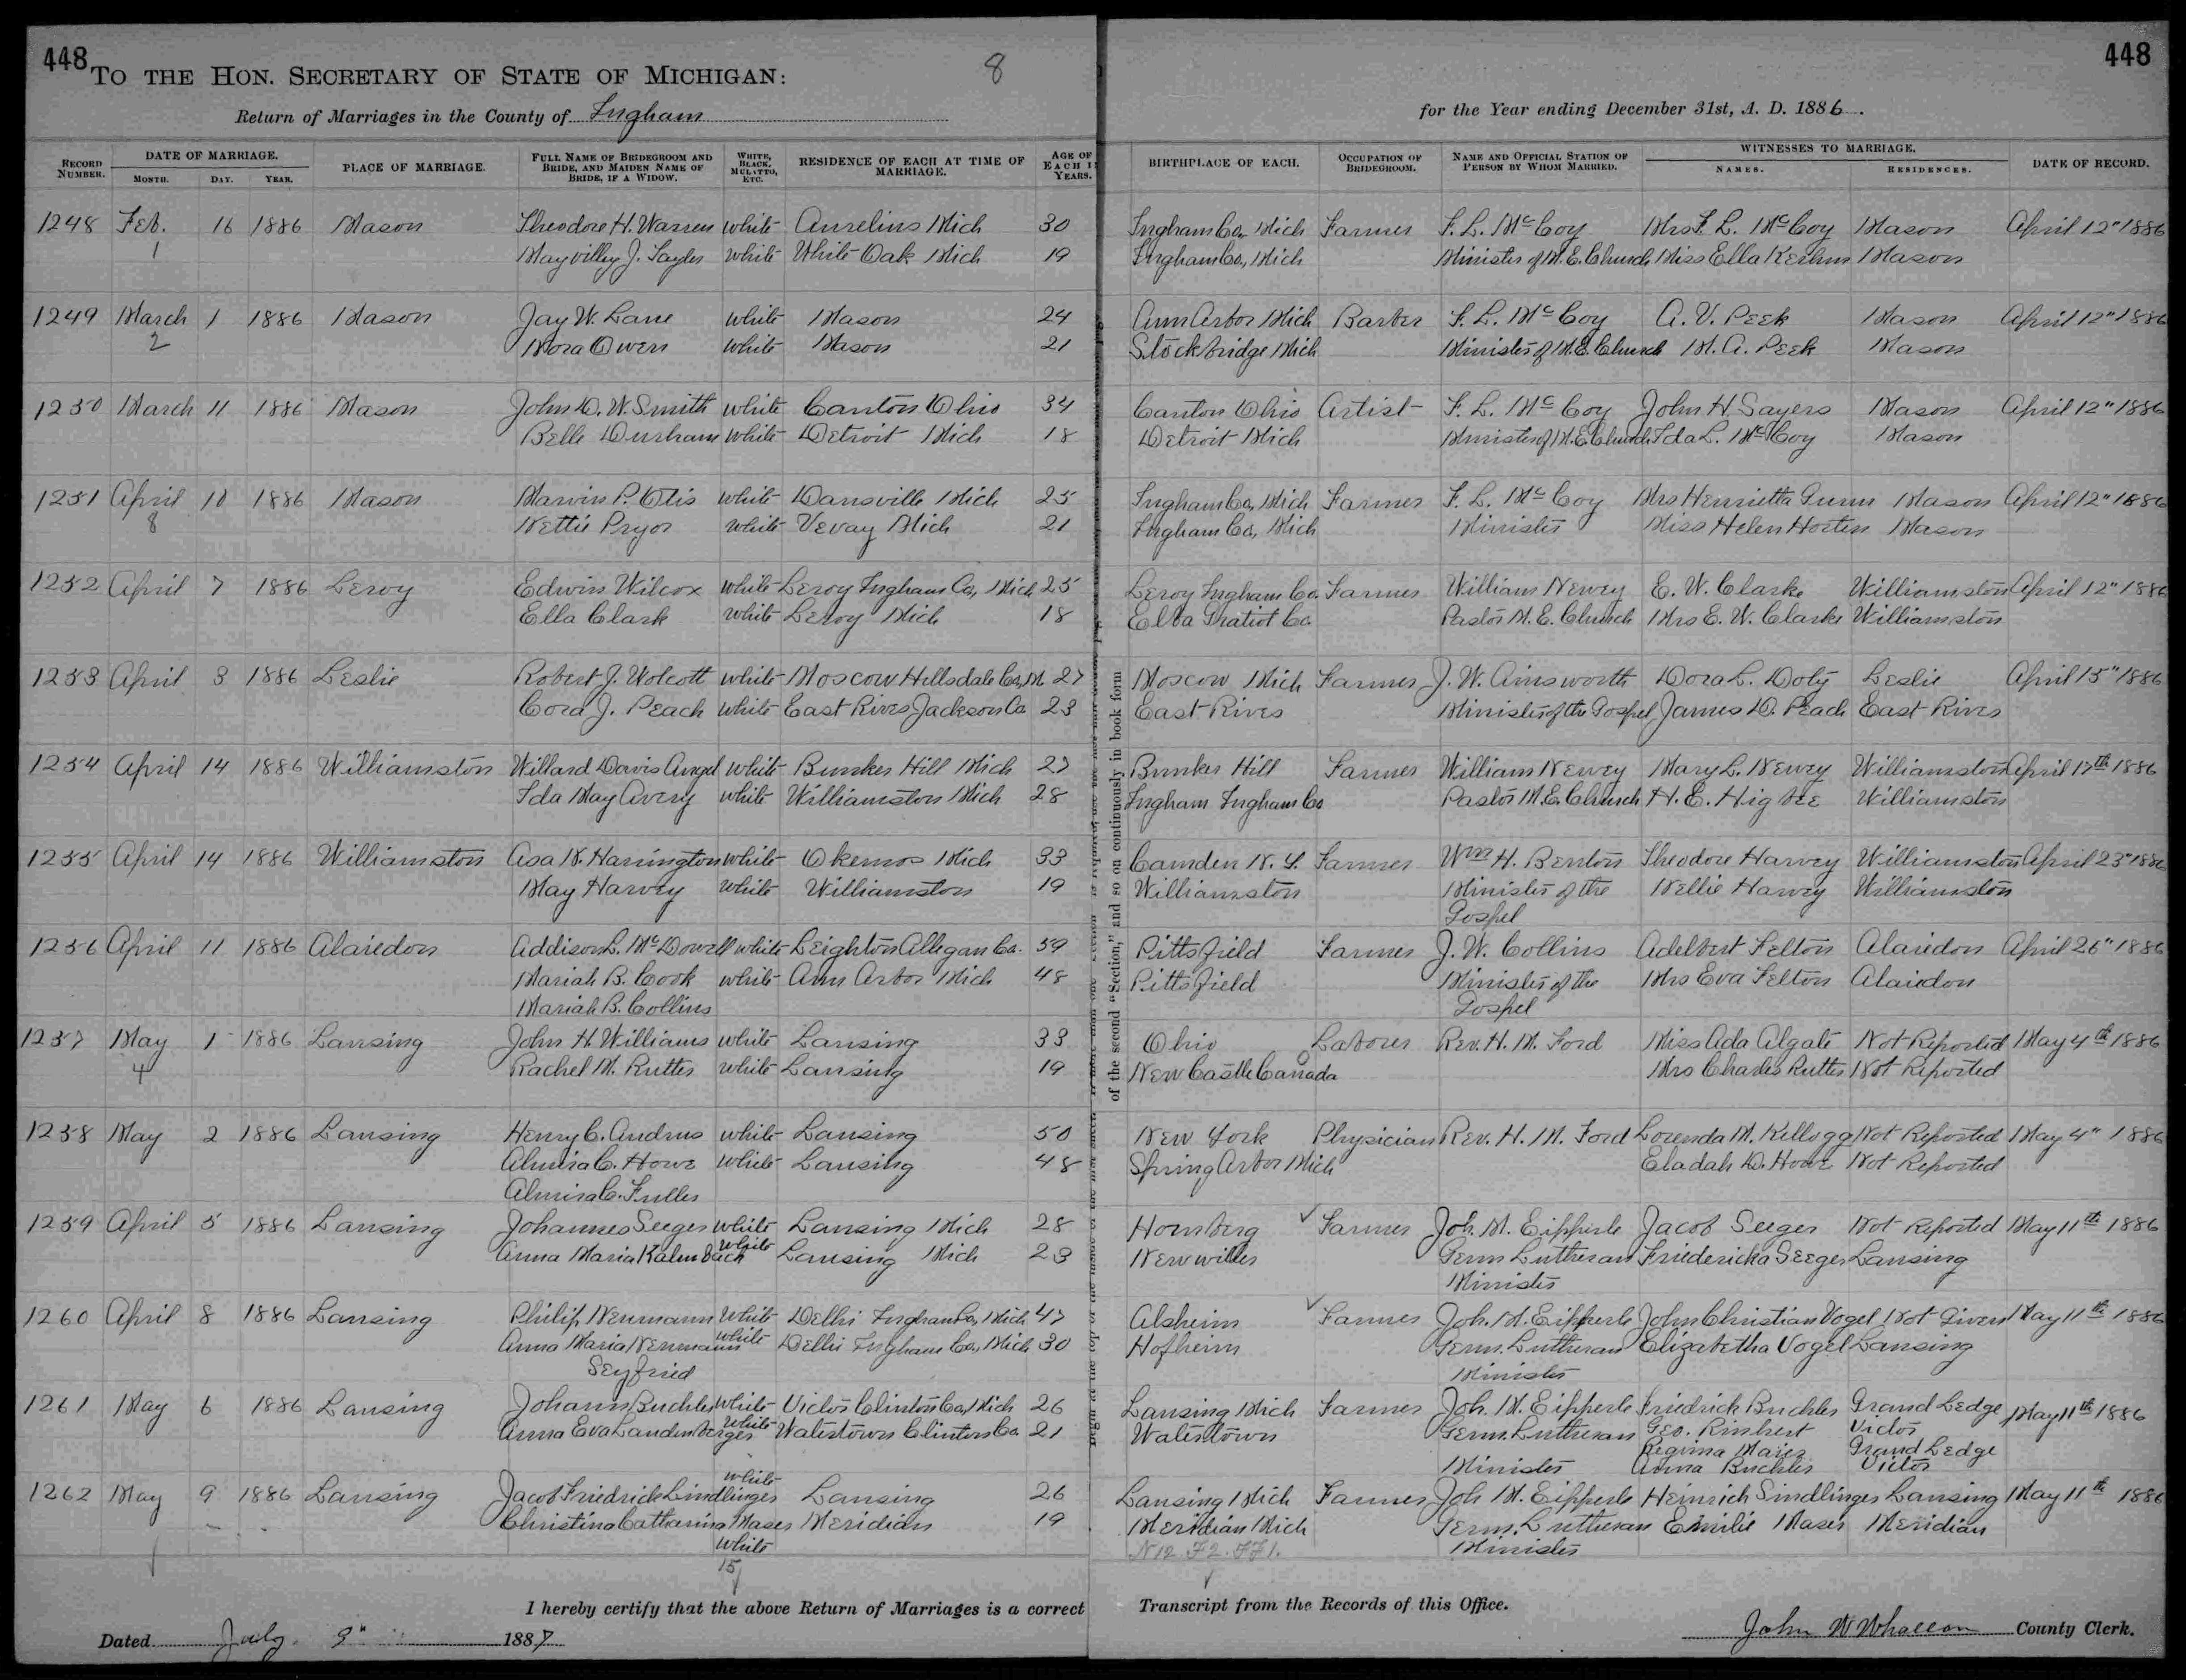 448
TO THE HON. SECRETARY OF STATE OF MICHIGAN:
8
448
Return of Marriages in the County of Ingham
for the Year ending December 31st, A. D. 1886.
RECORD NUMBER. DATE OF MARRIAGE. MONTH. DAY. YEAR. PLACE OF MARRIAGE. FULL NAME OF BRIDEGROOM AND BRIDE, AND MAIDEN NAME OF BRIDE, IF A WIDOW. WHITE, BLACK, MULATTO, ETC. RESIDENCE OF EACH AT TIME OF MARRIAGE. AGE OF EACH IN YEARS. BIRTHPLACE OF EACH. OCCUPATION OF BRIDEGROOM. NAME AND OFFICIAL STATION OF PERSON BY WHOM MARRIED. WITNESSES TO MARRIAGE. NAMES. RESIDENCES. DATE OF RECORD.
1248 Feb. 16 1886 Mason Theodore H. Warren white Aurelius Mich 30 Ingham Co., Mich Farmer F. L. McCoy Mrs F. L. McCoy Mason April 12" 1886
1 Mayvilley J. Sayles white White Oak Mich 19 Ingham Co., Mich Minister of M. E. Church Miss Ella Mason
1249 March 1 1886 Mason Jay W. Lane white Mason 24 Ann Arbor Mich Barber F. L. McCoy A. V. Peek Mason April 12" 1886
2 Nora Owen white Mason 21 Stockbridge Mich Minister of M. E. Church M. A. Peek Mason
1250 March 11 1886 Mason John D. W. Smith white Canton Ohio 34 Canton Ohio Artist F. L. McCoy John H. Sayers Mason April 12" 1886
Belle Durham white Detroit Mich 18 Detroit Mich Minister of M. E. Church Ida L. McCoy Mason
1251 April 10 1886 Mason Marvin P. Otis white Dansville Mich 25 Ingham Co., Mich Farmer F. L. McCoy Mrs Henrietta Gunn Mason April 12" 1886
8 Nettie Pryor white Vevay Mich 21 Ingham Co., Mich Minister Miss Helen Horton Mason
1252 April 7 1886 Leroy Edwin Wilcox white Leroy Ingham Co., Mich 25 Leroy Ingham Co. Farmer William Newey E. W. Clarke Williamston April 12" 1886
Ella Clark white Leroy Mich 18 Elba Gratiot Co. Pastor M. E. Church Mrs E. W. Clarke Williamston
1253 April 3 1886 Leslie Robert J. Wolcott white Moscow Hillsdale Co., M. 27 Moscow Mich Farmer J. W. Ainsworth Dora L. Doty Leslie April 15" 1886
Cora J. Peach white East Rives Jackson Co. 23 East Rives Minister of the Gospel James D. Peach East Rives
1254 April 14 1886 Williamston Willard Davis Angel white Bunker Hill Mich 27 Bunker Hill Farmer William Newey Mary L. Newey Williamston April 17th 1886
Ida May Avery white Williamston Mich 28 Ingham Ingham Co Pastor M. E. Church H. E. Higbee Williamston
1255 April 14 1886 Williamston Asa N. Harrington white Okemos Mich 33 Camden N. Y. Farmer Wm H. Benton Theodore Harvey Williamston April 23" 1886
May Harvey white Williamston 19 Williamston Minister of the Nellie Harvey Williamston
Gospel
1256 April 11 1886 Alaiedon Addison L. McDowell white Leighton Allegan Co. 59 Pittsfield Farmer J. W. Collins Adelbert Felton Alaiedon April 26" 1886
Mariah B. Cook white Ann Arbor Mich 48 Pittsfield Minister of the Mrs Eva Felton Alaiedon
Mariah B. Collins Gospel
1257 May 1 1886 Lansing John H. Williams white Lansing 33 Ohio Laborer Rev. H. M. Ford Miss Ada Algate Not Reported May 4th 1886
4 Rachel M. Rutter white Lansing 19 New Castle Canada Mrs Charles Rutter Not Reported
1258 May 2 1886 Lansing Henry C. Andrus white Lansing 50 New York Physician Rev. H. M. Ford Lorenda M. Kellogg Not Reported May 4" 1886
Almira C. Howe white Lansing 48 Spring Arbor Mich Eladah D. Howe Not Reported
Almira C. Fuller
1259 April 5 1886 Lansing Johannes Seeger white Lansing Mich 28 Homberg Farmer Joh. M. Eipperle Jacob Seeger Not Reported May 11th 1886
Anna Maria Kalmbach white Lansing Mich 23 Newwiler Germ. Lutheran Friedericka Seeger Lansing
Minister
1260 April 8 1886 Lansing Philip Nenmann white Delhi Ingham Co., Mich 47 Alsheim Farmer Joh. M. Eipperle John Christian Vogel Not Given May 11th 1886
Anna Maria Nenmann white Delhi Ingham Co., Mich 30 Hofheim Germ. Lutheran Elizabetha Vogel Lansing
Seyfried Minister
1261 May 6 1886 Lansing Johann Buchler white Victor Clinton Co., Mich 26 Lansing Mich Farmer Joh. M. Eipperle Friedrick Buchler Grand Ledge May 11th 1886
Anna Eva Landenberger white Waterstown Clinton Co. 21 Waterstown Germ. Lutheran Geo. Rinhert Victor
Regina Maier Grand Ledge
Minister Anna Buchler Victor
1262 May 9 1886 Lansing Jacob Friedrick Lindlinger white Lansing 26 Lansing Mich Farmer Joh M. Eipperle Heinrich Sindlinger Lansing May 11th 1886
Christina Catharina Maser Meridian 19 Meridian Mich Germ. Lutheran Emilie Maser Meridian
white N12 F2. FF1. Minister
15
of the second "Section," and so on continuously in book form
I hereby certify that the above Return of Marriages is a correct Transcript from the Records of this Office.
Dated July 9" 1887 John W Whallon County Clerk.